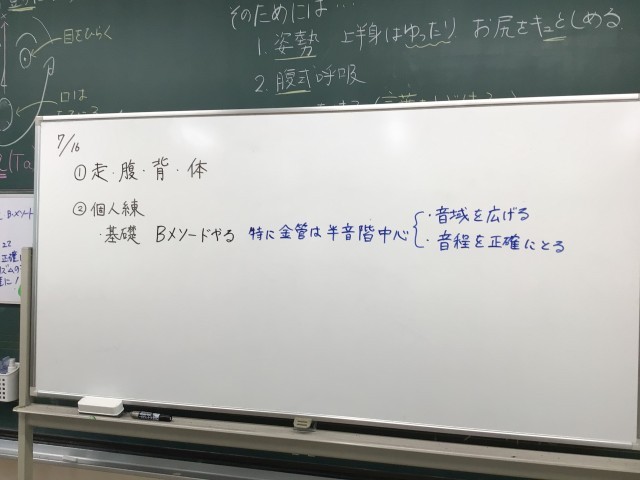 そのためには…
目をひらく
1. 姿勢 上半身はゆったり お尻をキュとしめる
2. 腹式呼吸
口は
7/16
①走・腹・背・体
②個人練
・基礎 Bメソードやる 特に金管は半音階中心
・音域を広げる
・音程を正確にとる
Bメソード
正確に